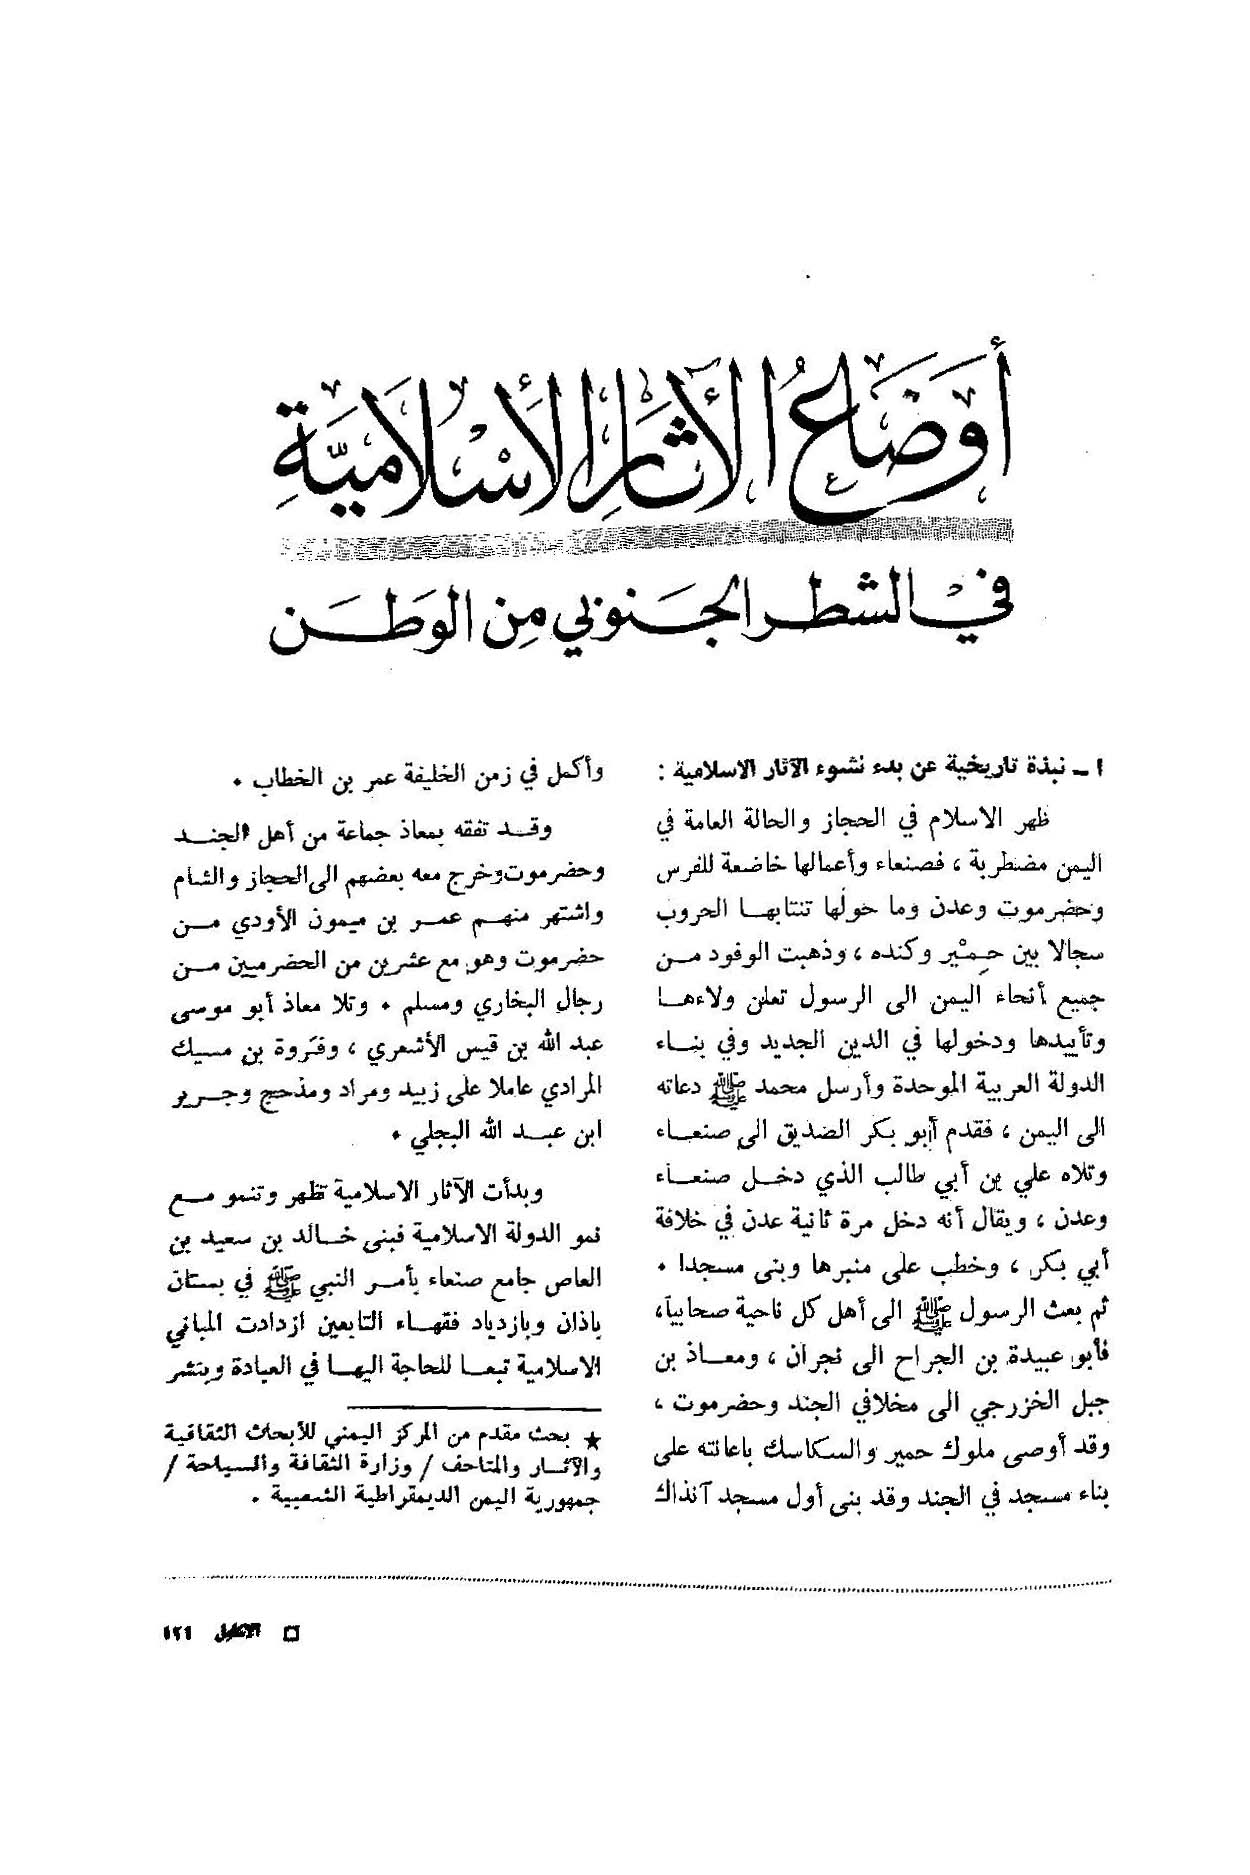 أَوضَاعُ الآثَارِ الأَسْلَامِيَّةِ
في الشطر الجنوبي مِن الوطن
١ ـ نبذة تاريخية عن بدء نشوء الآثار الاسلامية :
ظهر الاسلام في الحجاز والحالة العامة في
اليمن مضطربة ، فصنعاء وأعمالها خاضعة للفرس
وحضرموت وعدن وما حولها تنتابهــا الحروب
سجالا بين حِميْر وكنده ، وذهبت الوفود مــن
جميع أنحاء اليمن الى الرسول تعلن ولاءهــا
وتأييدها ودخولها في الدين الجديد وفي بنــاء
الدولة العربية الموحدة وأرسل محمد ﷺ دعاته
الى اليمن ، فقدم أبو بكر الصديق الى صنعــاء
وتلاه علي بن أبي طالب الذي دخــل صنعــاء
وعدن ، ويقال أنه دخل مرة ثانية عدن في خلافة
أبي بكر ، وخطب على منبرها وبنى مسجدا .
ثم بعث الرسول ﷺ الى أهل كل ناحية صحابيا،
فأبو عبيدة بن الجراح الى نجران ، ومعــاذ بن
جبل الخزرجي الى مخلافي الجند وحضرموت ،
وقد أوصى ملوك حمير والسكاسك باعانته على
بناء مسجد في الجند وقد بنى أول مسجد آنذاك
وأكمل في زمن الخليفة عمر بن الخطاب .
وقــد تفقه بمعاذ جماعة من أهل الجنــد
وحضرموت وخرج معه بعضهم الى الحجاز والشام
واشتهر منهــم عمــر بن ميمون الأودي مــن
حضرموت وهو مع عشرين من الحضرميين مــن
رجال البخاري ومسلم . وتلا معاذ أبو موسى
عبد الله بن قيس الأشعري ، وفروة بن مسيك
المرادي عاملا على زبيد ومراد ومذحج وجــرير
ابن عبــد الله البجلي .
وبدأت الآثار الاسلامية تظهر وتنمو مــع
نمو الدولة الاسلامية فبنى خــالد بن سعيد بن
العاص جامع صنعاء بأمــر النبي ﷺ في بستان
باذان وبازدياد فقهــاء التابعين ازدادت المباني
الاسلامية تبعــا للحاجة اليهــا في العبادة وبنشر
★ بحث مقدم من المركز اليمني للأبحاث الثقافية
والآثــار والمتاحف / وزارة الثقافة والسياحة /
جمهورية اليمن الديمقراطية الشعبية .
□ الاكليل ١٢١